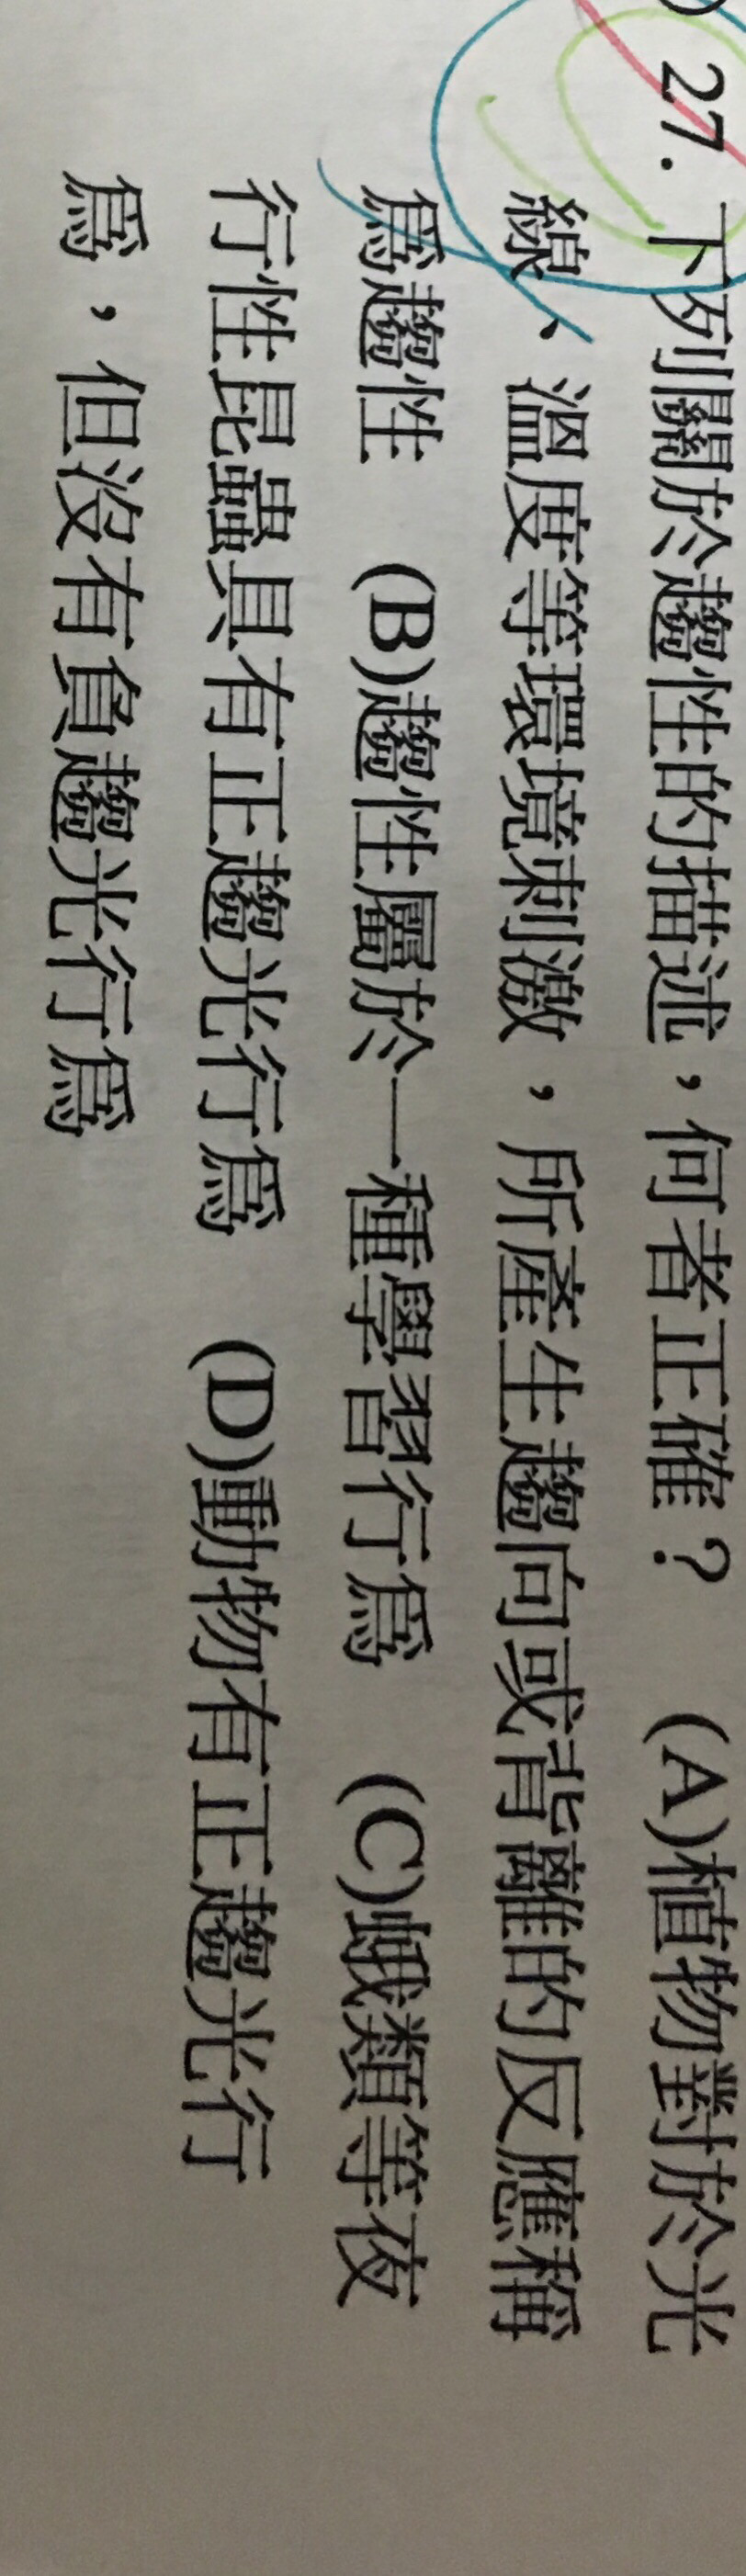 ) 27. 下列關於趨性的描述，何者正確？ (A)植物對於光
線、溫度等環境刺激，所產生趨向或背離的反應稱
為趨性 (B)趨性屬於一種學習行為 (C)蛾類等夜
行性昆蟲具有正趨光行為 (D)動物有正趨光行
為，但沒有負趨光行為